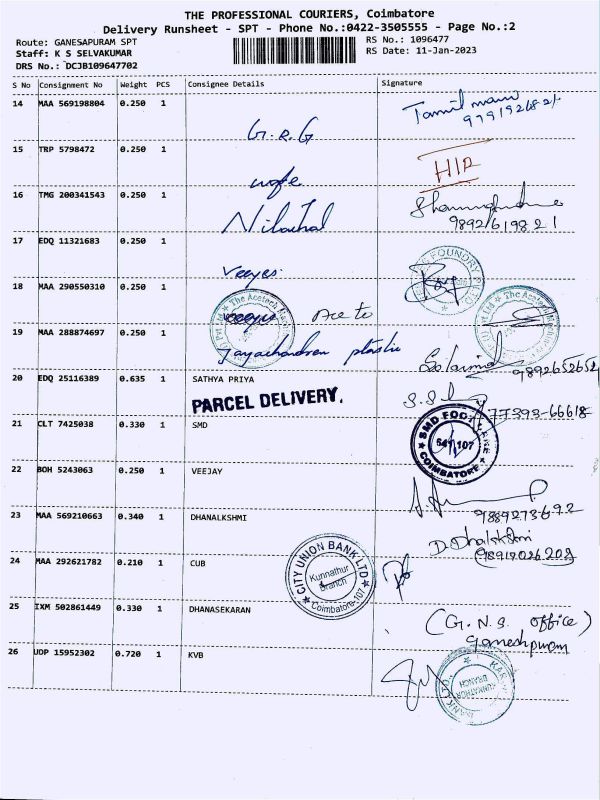 THE PROFESSIONAL COURIERS, Coimbatore
Delivery Runsheet - SPT - Phone No.:0422-3505555 - Page No.:2
Route: GANESAPURAM SPT
Staff: K S SELVAKUMAR
DRS No.: DCJB109647702
RS No.: 1096477
RS Date: 11-Jan-2023
S No Consignment No Weight PCS Consignee Details Signature
14 MAA 569198804 0.250 1 G.R.G
15 TRP 5798472 0.250 1 HIR
16 TMG 200341543 0.250 1 Nilachal
9892619821
17 EDQ 11321683 0.250 1 Veeyes.
18 MAA 290550310 0.250 1 Aceto
The Acetech Machinery
19 MAA 288874697 0.250 1 Jayachandren plastic
9892652652
20 EDQ 25116389 0.635 1 SATHYA PRIYA
PARCEL DELIVERY.
77393-66618
21 CLT 7425038 0.330 1 SMD
SMD FOOT CARE
641 107
COIMBATORE
22 BOH 5243063 0.250 1 VEEJAY
9889273692
23 MAA 569210663 0.340 1 DHANALKSHMI
D. Dhalakshmi
24 MAA 292621782 0.210 1 CUB
CITY UNION BANK LTD
Kunnathur
Branch
Coimbatore-107
25 IXM 502861449 0.330 1 DHANASEKARAN
(G.N.S. office)
ganeshpuram
26 UDP 15952302 0.720 1 KVB
KUNNATHUR
BRANCH